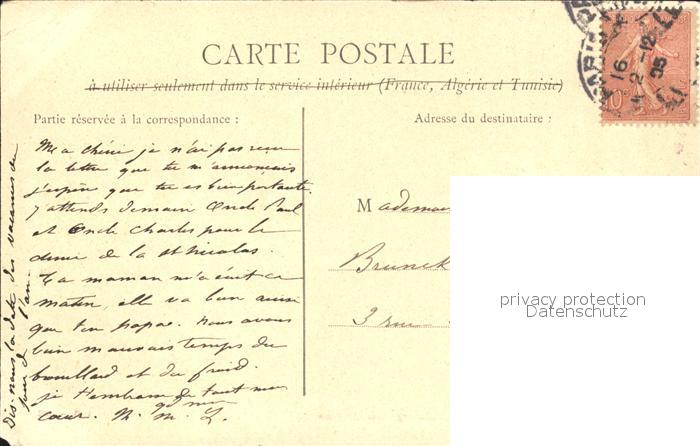 CARTE POSTALE
à utiliser seulement dans le service intérieur (France, Algérie et Tunisie)
Partie réservée à la correspondance :
Adresse du destinataire :
Ma chérie je n'ai pas reçu
la lettre que tu m'annonçais
j'espère que tu es bien portante.
j'attends demain Oncle Paul
et Oncle Charles pour le
diner de la St Nicolas.
Ta maman m'a écrit ce
matin, elle va bien ainsi
que ton papa. nous avons
bien mauvais temps du
brouillard et du froid.
je t'embrasse de tout mon
cœur.
Dis-nous la date des vacances du
jour de l'an.
Mademoi
Brunck
3 rue
PARIS
16
12
05
10
privacy protection
Datenschutz